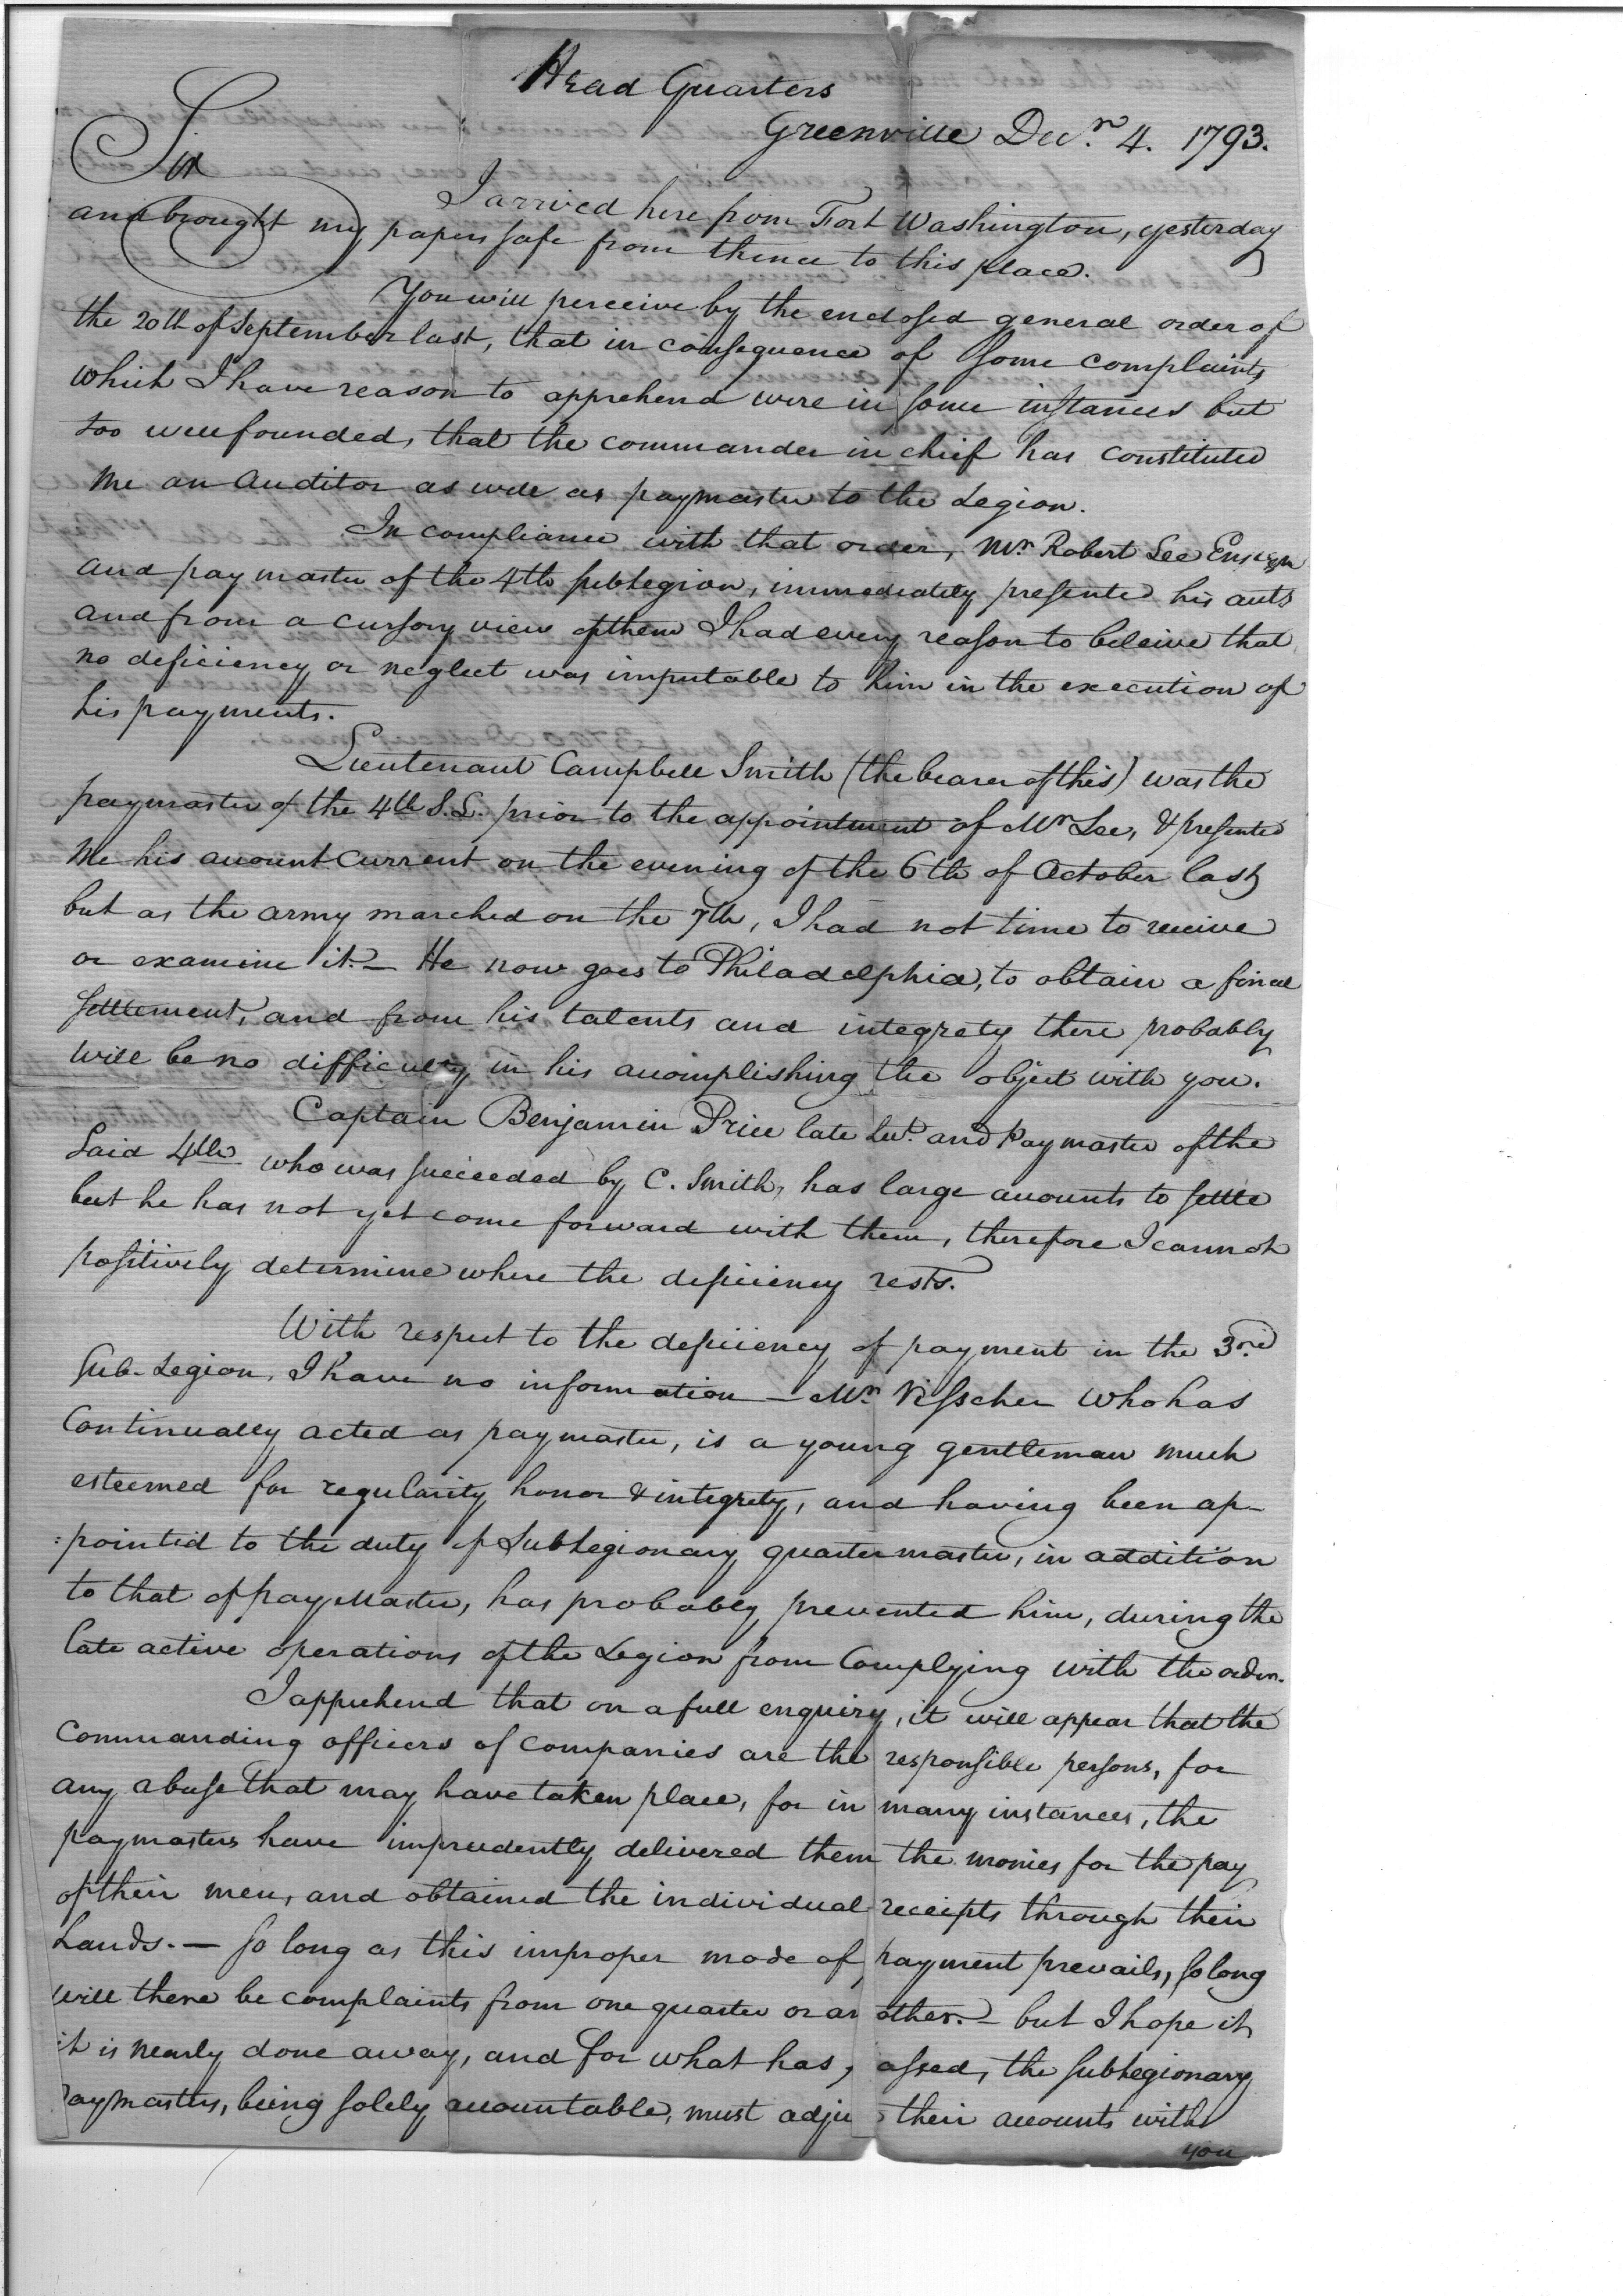 Head Quarters
Greenville Decr. 4. 1793.
Sir
I arrived here from Fort Washington, yesterday
and brought my papers safe from thence to this place.
You will perceive by the enclosed general order of
the 20th of September last, that in consequence of some complaints
which I have reason to apprehend were in some instances but
too well founded, that the commander in chief has constituted
me an Auditor as well as paymaster to the Legion.
In compliance with that order, Mr. Robert Lee Ensign
and paymaster of the 4th sublegion, immediately presented his accts
and from a cursory view of them I had every reason to beleive that
no deficiency or neglect was imputable to him in the execution of
his payments.
Lieutenant Campbell Smith (the bearer of this) was the
paymaster of the 4th S.L. prior to the appointment of Mr Lee, & presented
me his account Current on the evening of the 6th of October last,
but as the army marched on the 7th, I had not time to receive
or examine it. — He now goes to Philadelphia, to obtain a final
settlement, and from his talents and integrety there probably
will be no difficulty in his accomplishing the object with you.
Captain Benjamin Price late Lut. and Paymaster of the
said 4th who was succeeded by C. Smith, has large accounts to settle
but he has not yet come forward with them, therefore I cannot
positively determine where the deficiency rests.
With respect to the deficiency of payment in the 3rd
Sub-Legion, I have no information — Mr. Visscher who has
Continually acted as paymaster, is a young gentleman much
esteemed for regularity honor & integrety, and having been ap-
:pointed to the duty of Sublegionary quartermaster, in addition
to that of payMaster, has probably prevented him, during the
late active operations of the Legion from Complying with the order.
I apprehend that on a full enquiry, it will appear that the
Commanding officers of Companies are the responsible persons, for
any abuse that may have taken place, for in many instances, the
paymasters have imprudently delivered them the monies for the pay
of their men, and obtained the individual receipts through their
hands. — so long as this improper mode of payment prevails, so long
will there be complaints from one quarter or an other. — but I hope it
it is nearly done away, and for what has, assed, the sublegionary
aymasters, being solely accountable, must adju their accounts with
you